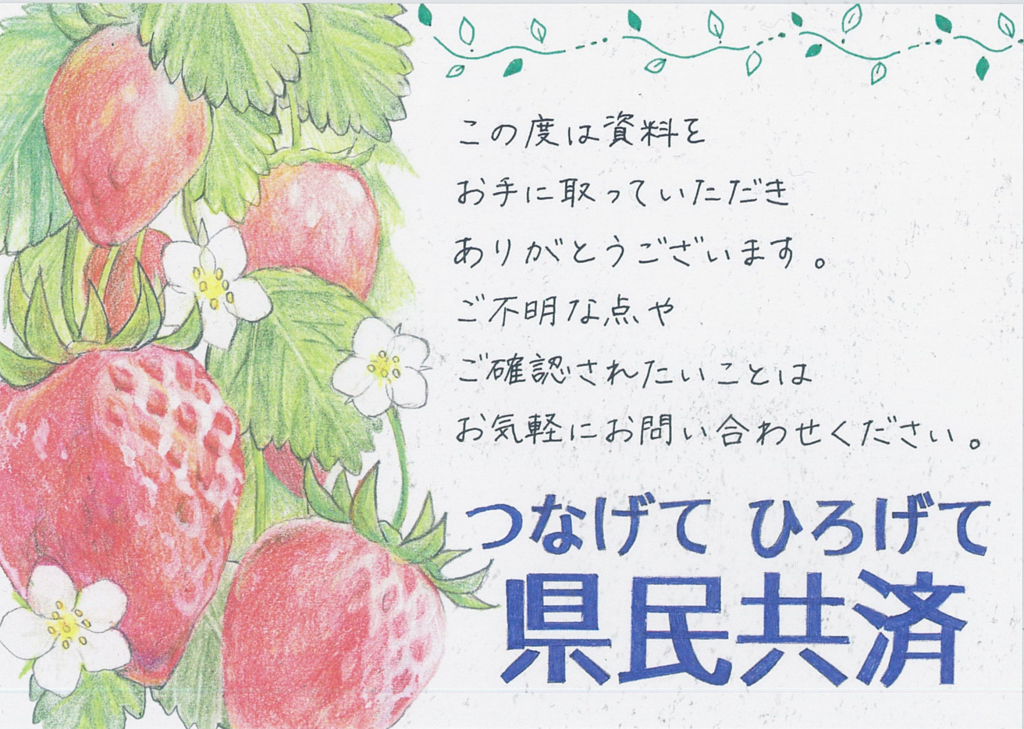 この度は資料を
お手に取っていただき
ありがとうございます。
ご不明な点や
ご確認されたいことは
お気軽にお問い合わせください。
つなげて ひろげて
県民共済